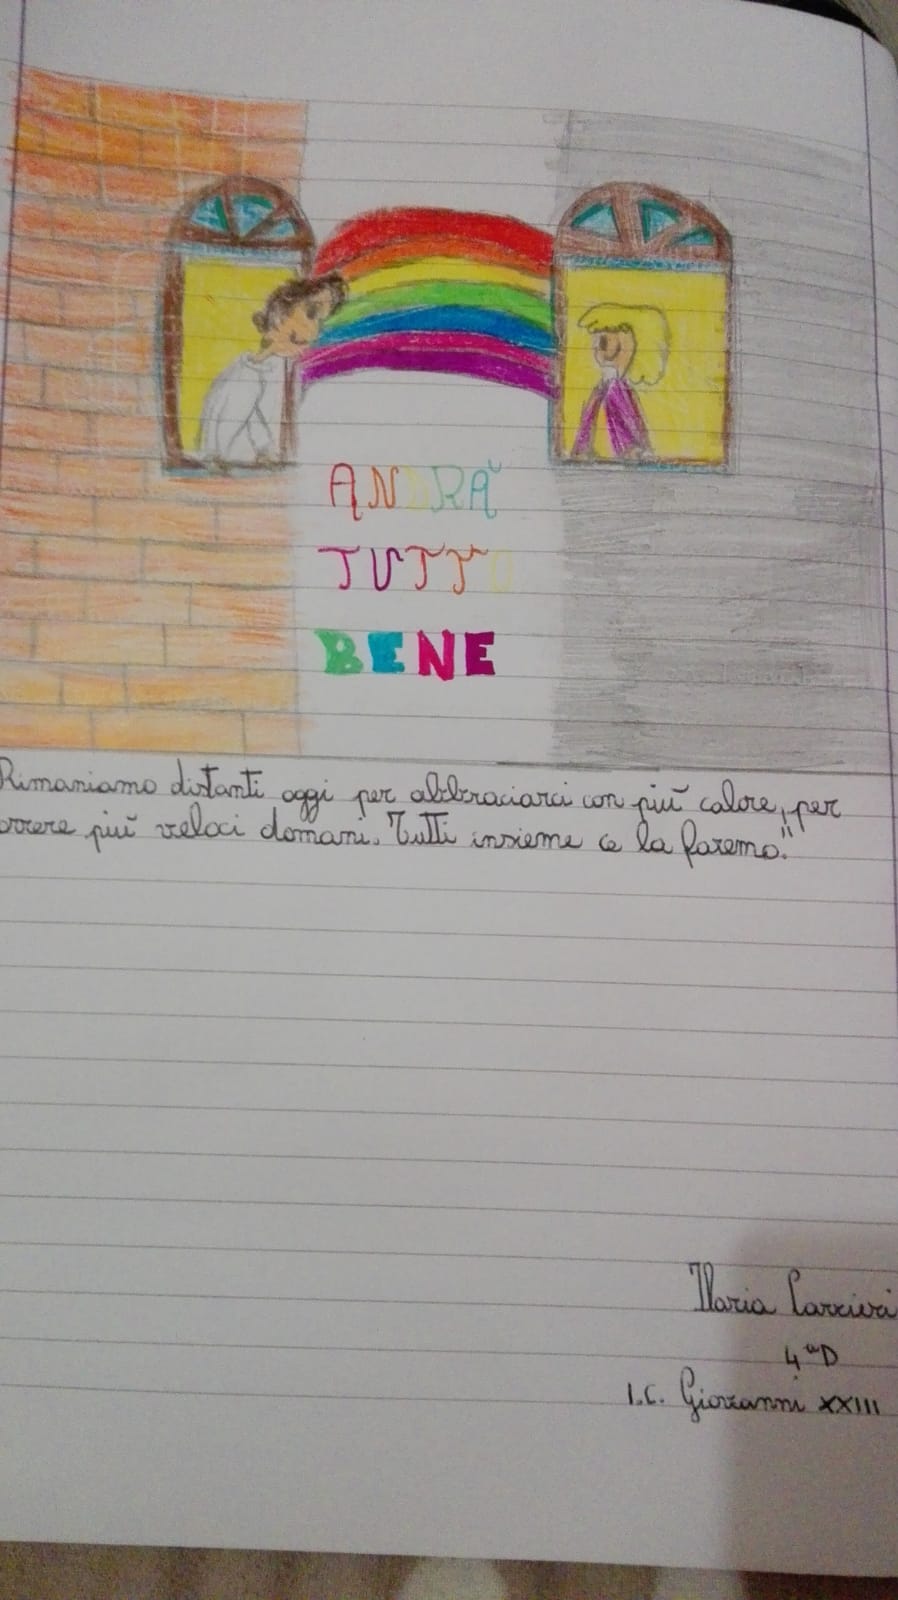 ANDRÀ
TUTTO
BENE
Rimaniamo distanti oggi per abbraciarci con più calore, per
orrere più veloci domani. Tutti insieme ce la faremo."
Ilaria
4ªD
I.C. Giovanni XXIII